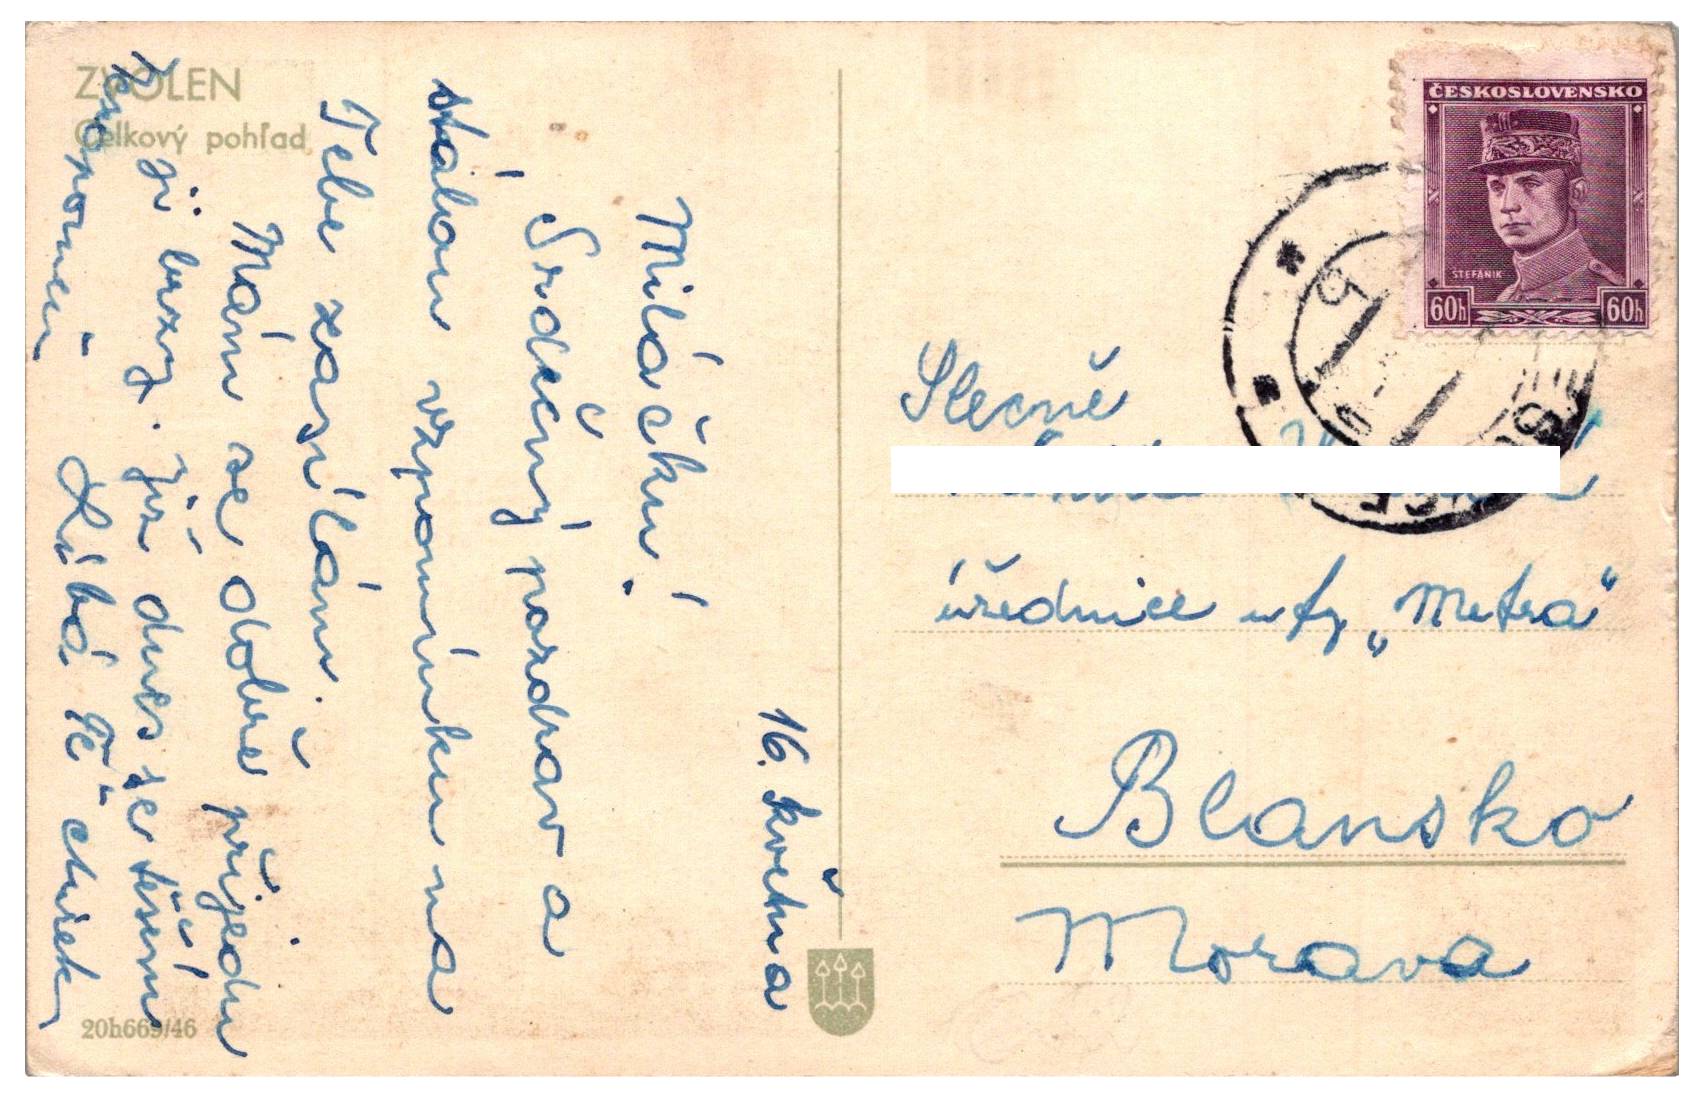 ZVOLEN
Celkový pohľad
16. května
Miláčku!
Srdečný pozdrav a
stálou vzpomínku na
Tebe zasílám.
Mám se dobře přijedu
již brzy. Již dnes se těším
Líbá Tě
20h669/46
ČESKOSLOVENSKO
ŠTEFÁNIK
60h 60h
Slečně
úřednice u fy „Metra“
Blansko
Morava